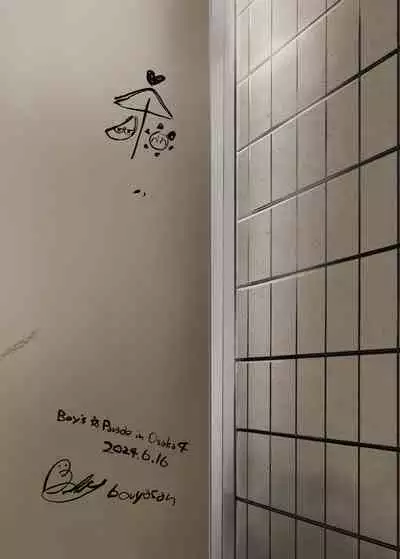 Boy's ☆ Parade in Osaka 4
2024.6.16
bouyosan